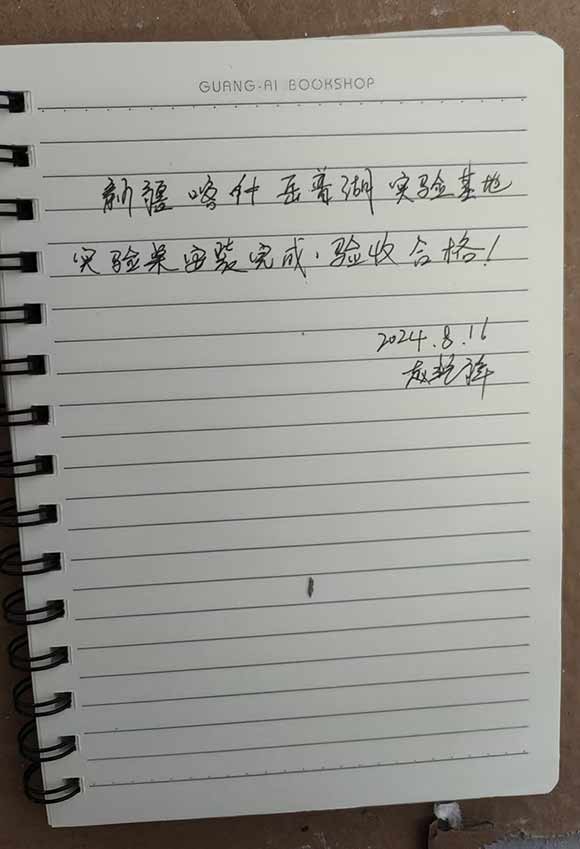 GUANG-AI BOOKSHOP
新疆喀什岳普湖实验基地
实验柜安装完成，验收合格！
2024.8.16